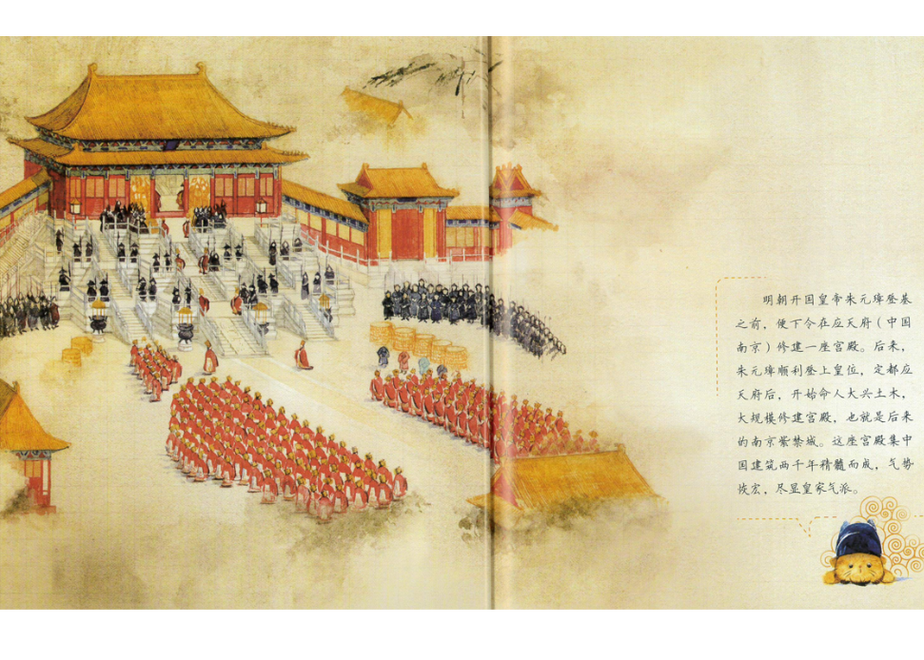 明朝开国皇帝朱元璋登基
之前，便下令在应天府（中国
南京）修建一座宫殿。后来，
朱元璋顺利登上皇位，定都应
天府后，开始命人大兴土木，
大规模修建宫殿，也就是后来
的南京紫禁城。这座宫殿集中
国建筑两千年精髓而成，气势
恢宏，尽显皇家气派。